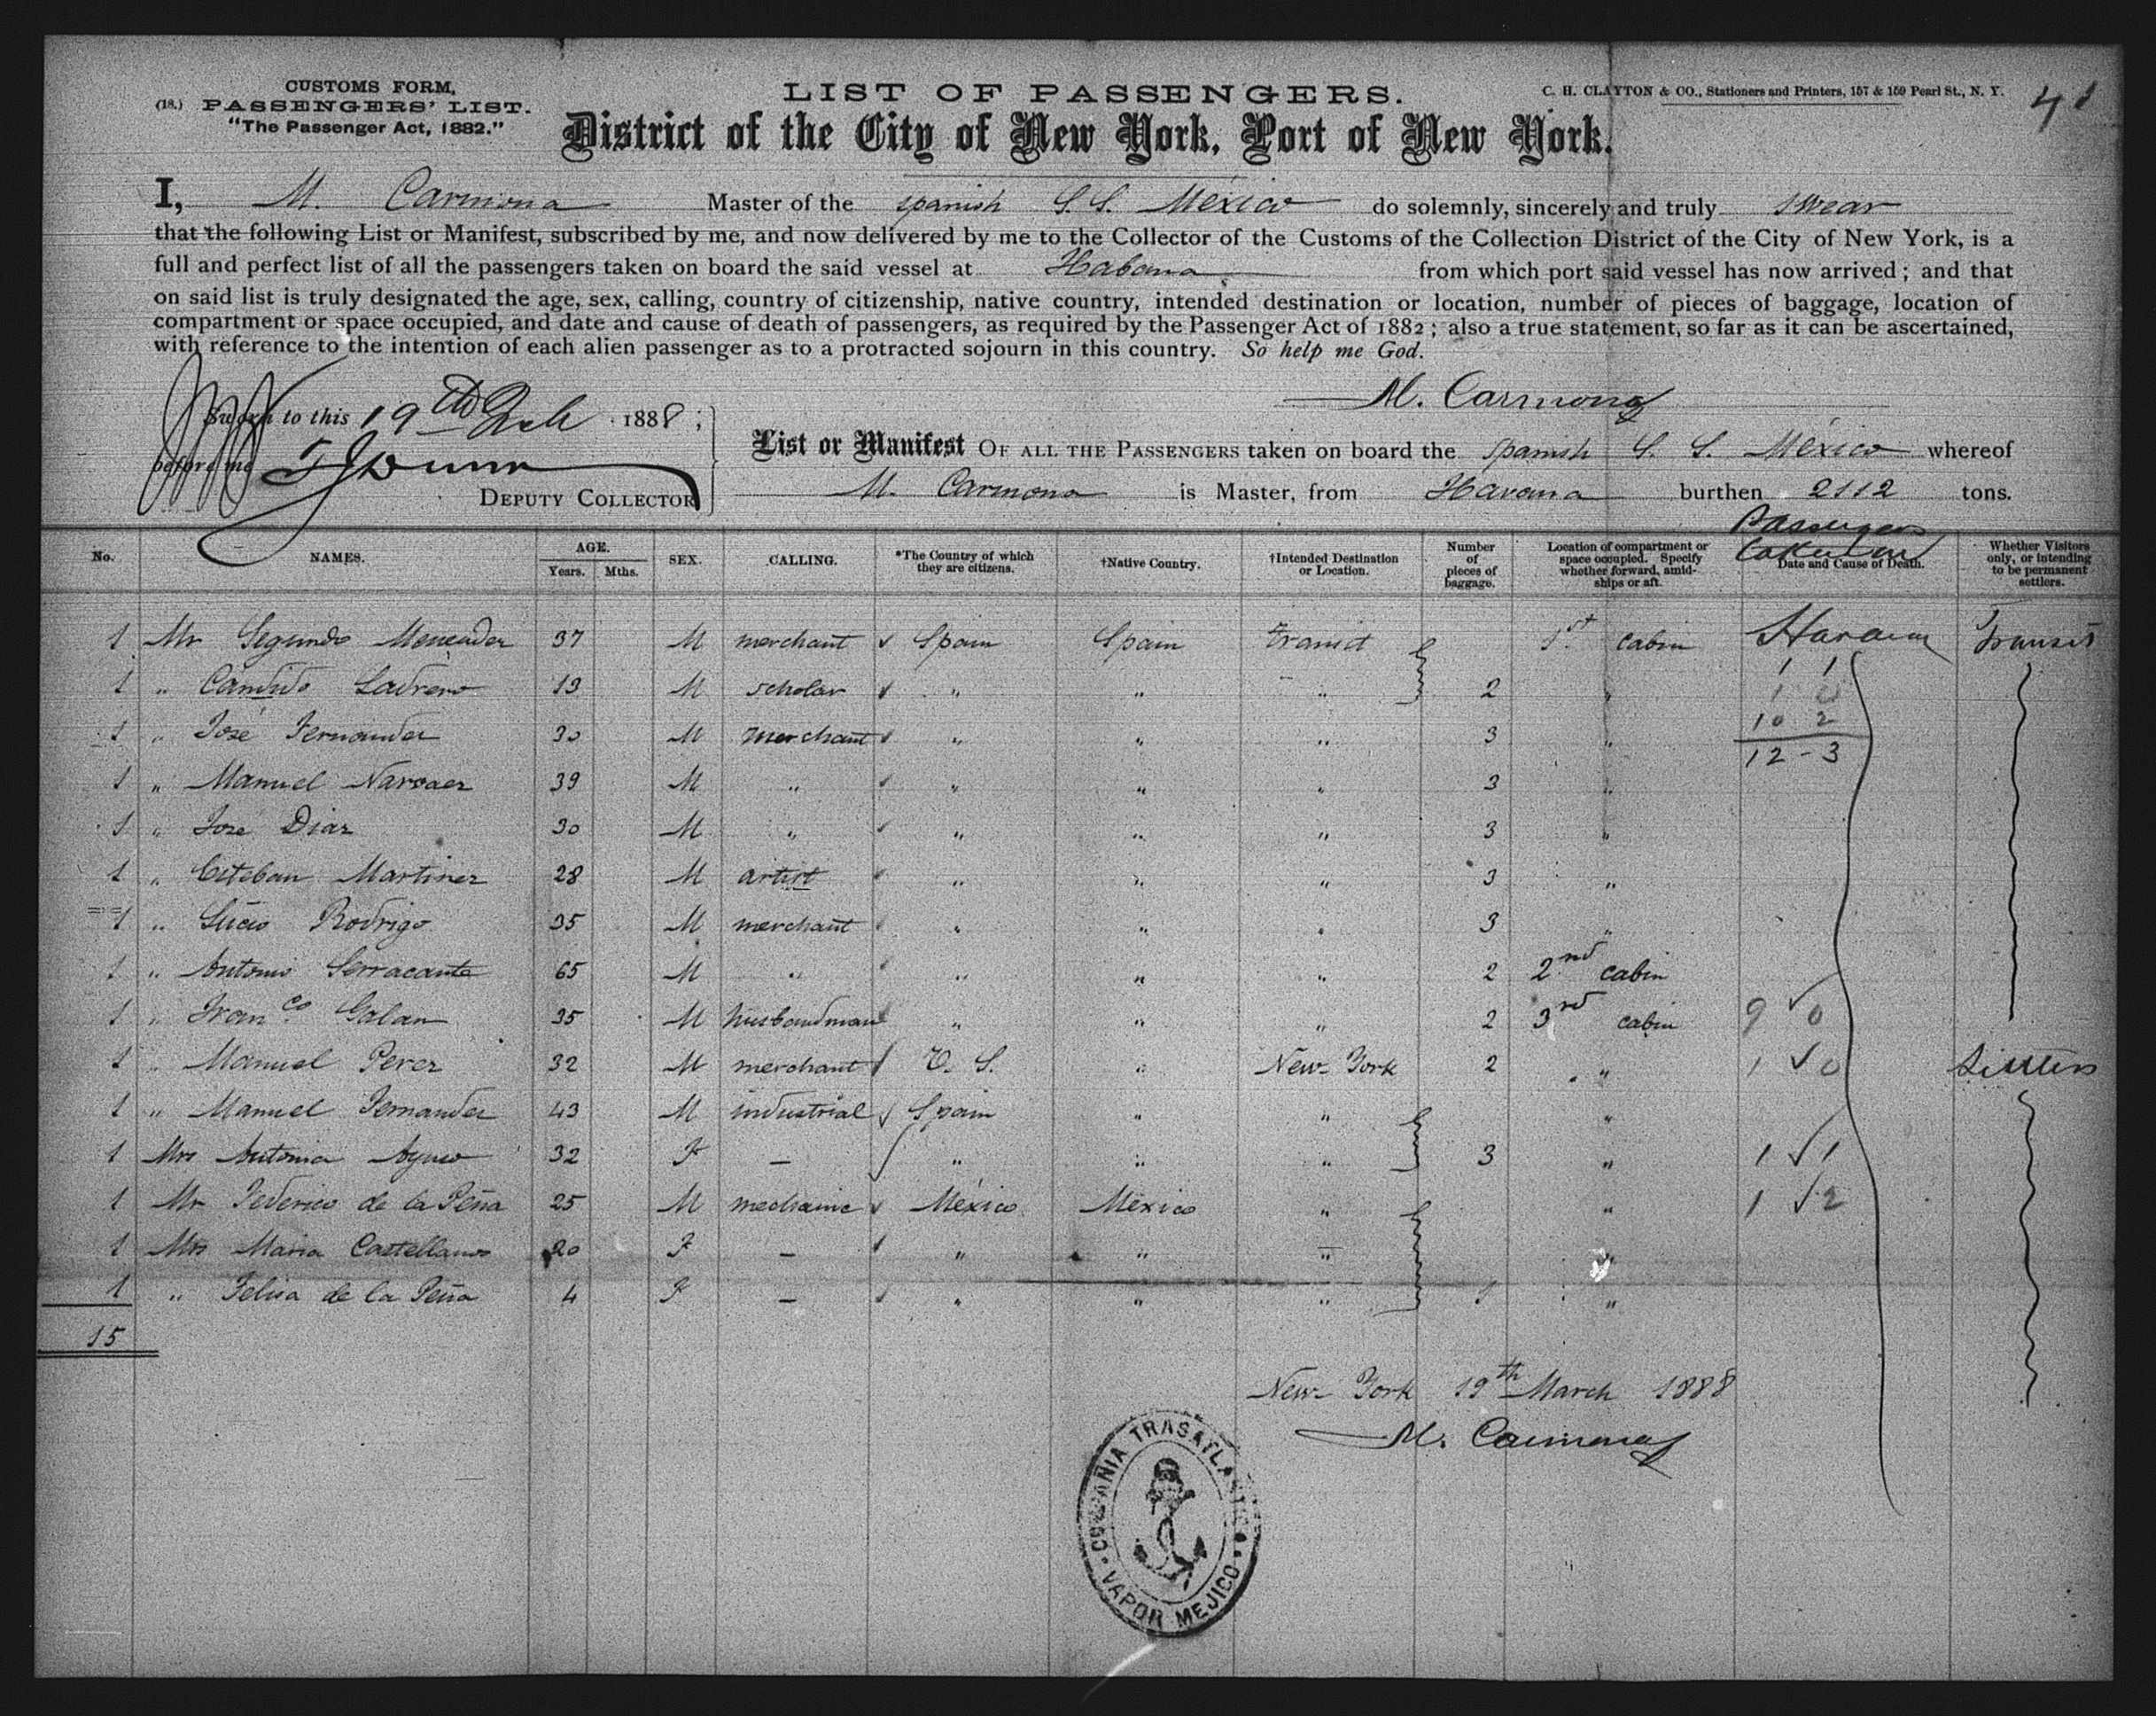 CUSTOMS FORM,
(18.) PASSENGERS' LIST.
"The Passenger Act, 1882."
LIST OF PASSENGERS.
C. H. CLAYTON & CO., Stationers and Printers, 157 & 159 Pearl St., N. Y.
District of the City of New York, Port of New York.
I, M. Carmona Master of the spanish S.S. México do solemnly, sincerely and truly swear
that the following List or Manifest, subscribed by me, and now delivered by me to the Collector of the Customs of the Collection District of the City of New York, is a
full and perfect list of all the passengers taken on board the said vessel at Habana from which port said vessel has now arrived; and that
on said list is truly designated the age, sex, calling, country of citizenship, native country, intended destination or location, number of pieces of baggage, location of
compartment or space occupied, and date and cause of death of passengers, as required by the Passenger Act of 1882; also a true statement, so far as it can be ascertained,
with reference to the intention of each alien passenger as to a protracted sojourn in this country. So help me God.
M. Carmona
Sworn to this 19th 1888;
before me
DEPUTY COLLECTOR
List or Manifest OF ALL THE PASSENGERS taken on board the spanish S. S. México whereof
M. Carmona is Master, from Havana burthen 2112 tons.
Passengers
taken on
No. NAMES. AGE. Years. Mths. SEX. CALLING. *The Country of which they are citizens. †Native Country. †Intended Destination or Location. Number of pieces of baggage. Location of compartment or space occupied. Specify whether forward, amidships or aft. Date and Cause of Death. Whether Visitors only, or intending to be permanent settlers.
1 Mr Segundo 37 M merchant Spain Spain transit 1st cabin Havana Transit
1 " Candido Ladrero 19 M scholar " " " 2 " 1 1
1 " José Fernandez 30 M merchant " " " 3 " 10 2
12 - 3
1 " Manuel Narvaez 39 M " " " " 3 "
1 " José Diaz 30 M " " " " 3 "
1 " Esteban Martinez 28 M artist " " " 3 "
1 " Lucio Rodrigo 35 M merchant " " " 3 "
1 " Antonio Serracante 65 M " " " " 2 2nd cabin
1 " Franco Galan 35 M husbandman " " " 2 3rd cabin 9 0
1 " Manuel Perez 32 M merchant U. S. " New York 2 " 1 0 Settlers
1 " Manuel Fernandez 43 M industrial Spain " " "
1 Mrs Antonia 32 F — " " " 3 " 1 1
1 Mr Federico de la Peña 25 M mechanic México México " " 1 2
1 Mrs Maria Castellanos 20 F — " " " "
1 " Felisa de la Peña 4 F — " " " 1 "
15
New York 19th March 1888
M. Carmona
COMPAÑIA TRASATLANTICA
VAPOR MEJICO